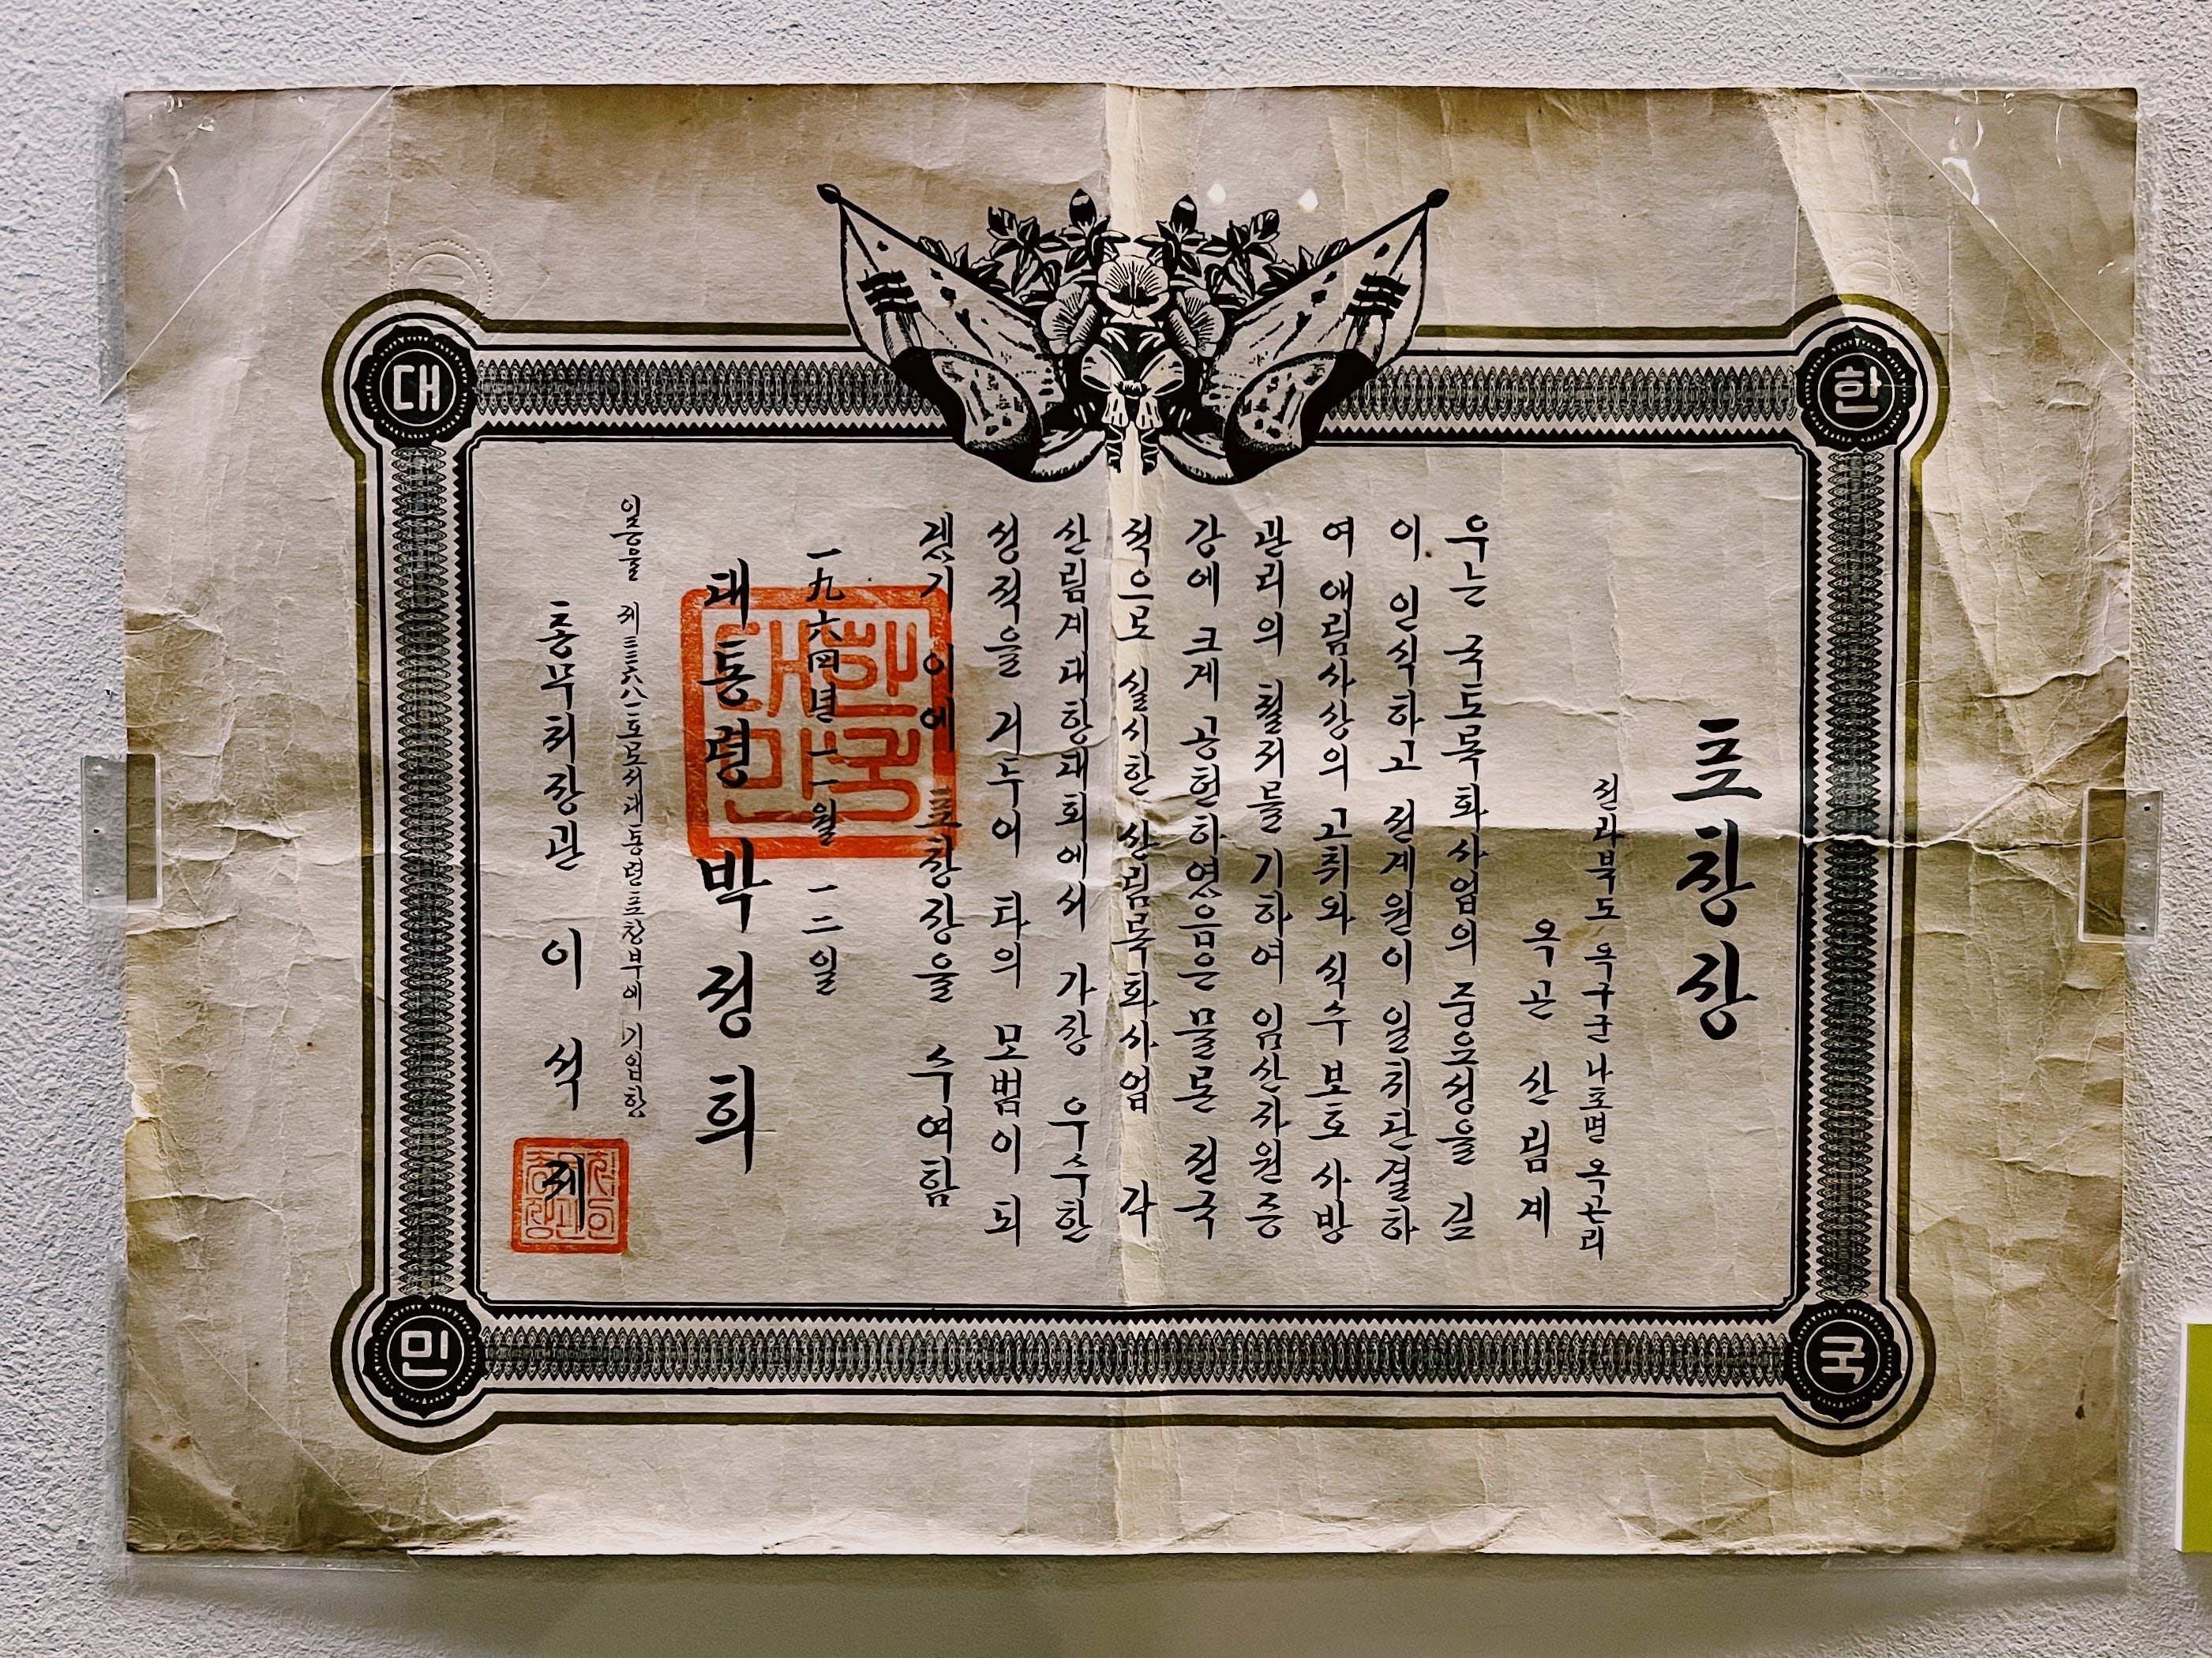 대한민국
표창장
전라북도 옥구군 나포면 옥곤리
옥곤 산림계
우는 국토녹화사업의 중요성을 깊
이 인식하고 전계원이 일치단결하
여 애림사상의 고취와 식수 보호 사방
관리의 철저를 기하여 임산자원증
강에 크게 공헌하였음은 물론 전국
적으로 실시한 산림녹화사업 각
산림계대항대회에서 가장 우수한
성적을 거두어 타의 모범이 되
겠기 이에 표창장을 수여함
一九六四년 一一월 一二일
대통령 박정희
이증을 제 호로서 대통령표창부에 기입함
총무처장관 이석제